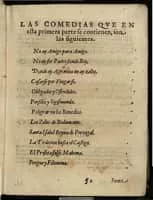 LAS COMEDIAS QVE EN
esta primera parte se contienen, son
las siguientes.
No ay Amigo para Amigo.
No ay ser Padre siendo Rey.
Donde ay Agrauios no ay zelos.
Casarse por Vengarse.
Obligados y Ofendidos.
Persiles y Sigismunda.
Peligrar en los Remedios.
Los Zelos de Rodamonte.
Santa Isabel Reyna de Portugal.
La Traicion busca el Castigo.
El Profeta falso Mahoma.
Progne y Filomena.